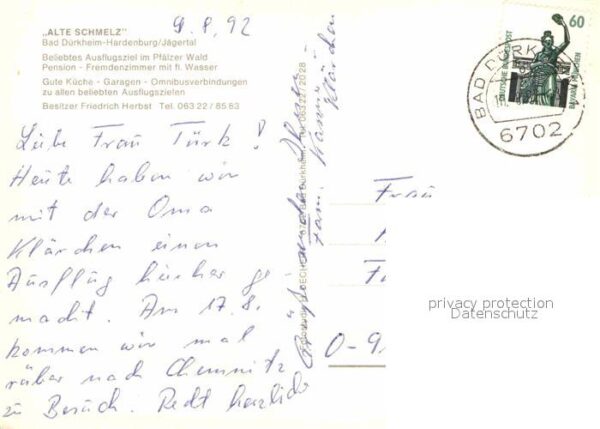 9.8.92
„ALTE SCHMELZ"
Bad Dürkheim-Hardenburg/Jägertal
Beliebtes Ausflugsziel im Pfälzer Wald
Pension - Fremdenzimmer mit fl. Wasser
Gute Küche - Garagen - Omnibusverbindungen
zu allen beliebten Ausflugszielen
Besitzer Friedrich Herbst Tel. 06322/8583
Liebe Frau Türk!
Heute haben wir
mit der Oma
Klärchen einen
Ausflug hierher ge-
macht. Am 17.8.
kommen wir mal
rüber nach Chemnitz
zu Besuch. Recht herzliche
Grüße
Fam.
Klärchen
Bad Dürkheim, Tel. 06322/2028
60
DEUTSCHE BUNDESPOST
BAVARIA MÜNCHEN
BAD DÜRK
6702
Frau
O-9
privacy protection
Datenschutz